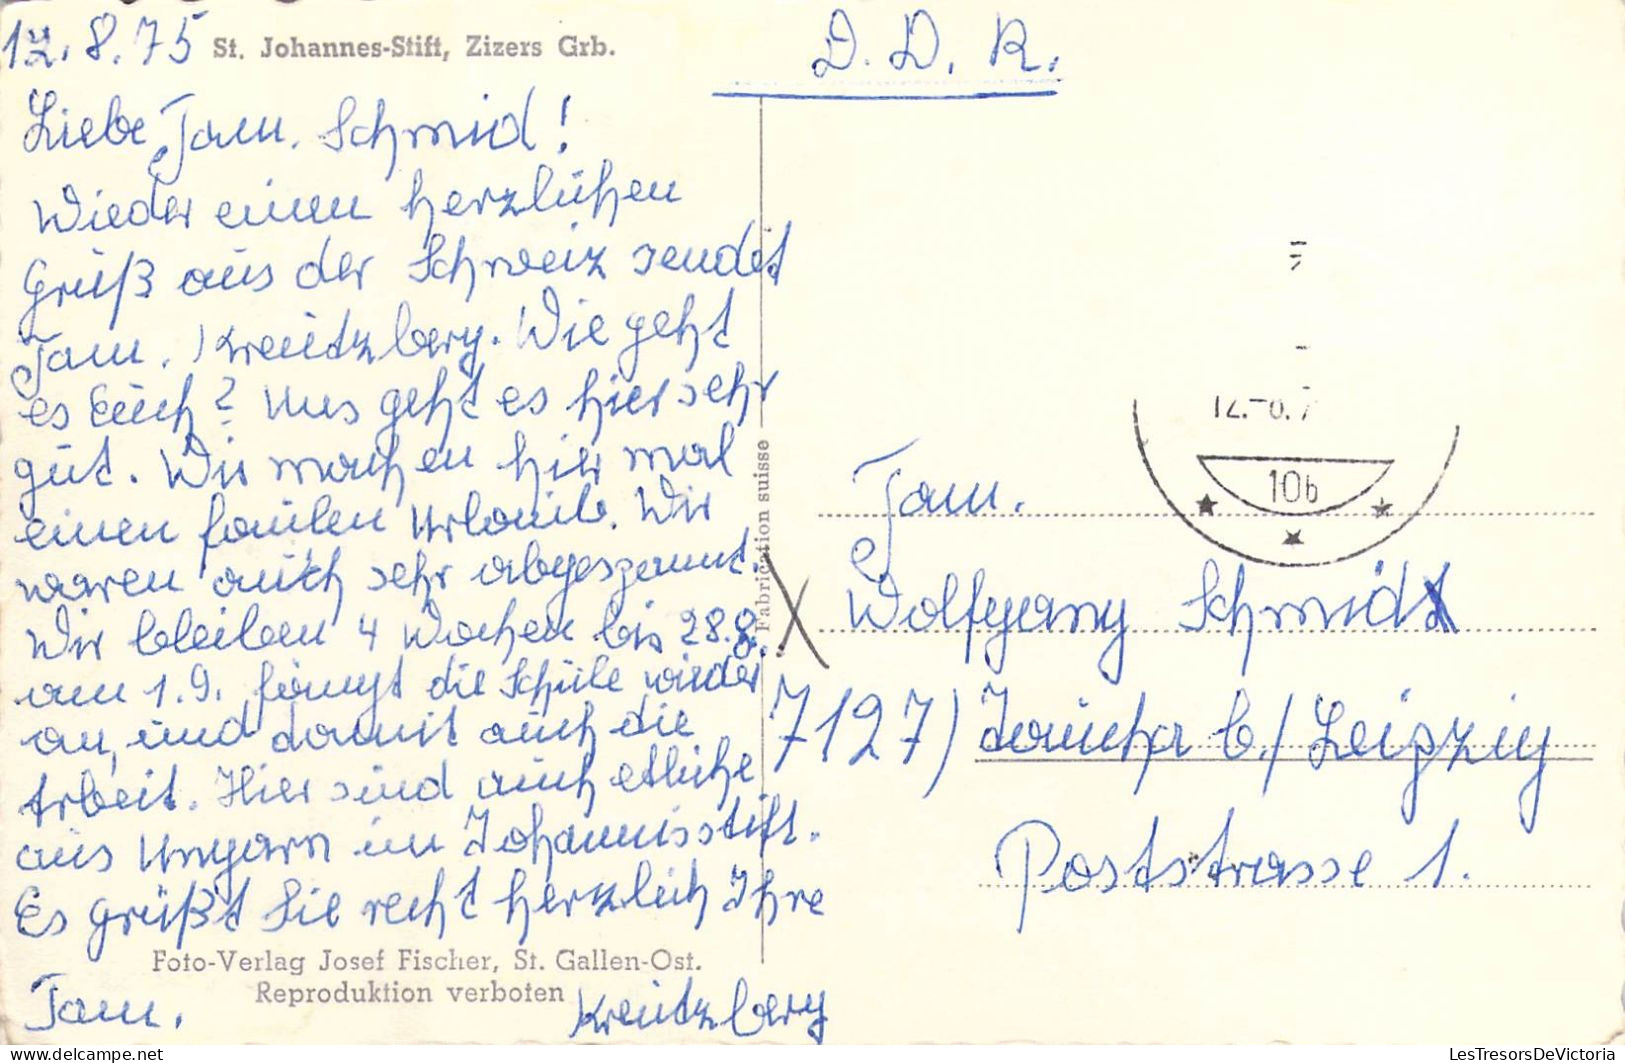 12.8.75 St. Johannes-Stift, Zizers Grb.
Liebe Fam. Schmid!
Wieder einen herzlichen
Gruß aus der Schweiz sendet
Fam. Kreutzberg. Wie geht
es Euch? Uns geht es hier sehr
gut. Wir machen hier mal
einen faulen Urlaub. Wir
waren auch sehr abgespannt.
Wir bleiben 4 Wochen bis 28.8.
am 1.9. fängt die Schule wieder
an, und damit auch die
Arbeit. Hier sind auch etliche
aus Ungarn im Johannisstift.
Es grüßt Sie recht herzlich Ihre
Foto-Verlag Josef Fischer, St. Gallen-Ost.
Reproduktion verboten
Fam. Kreutzberg
Fabrication suisse
D.D.R.
12.-8.7
10b
Fam.
Wolfgang Schmid
7127) Taucha b./Leipzig
Poststrasse 1.
LesTresorsDeVictoria.com
LesTresorsDeVictoria